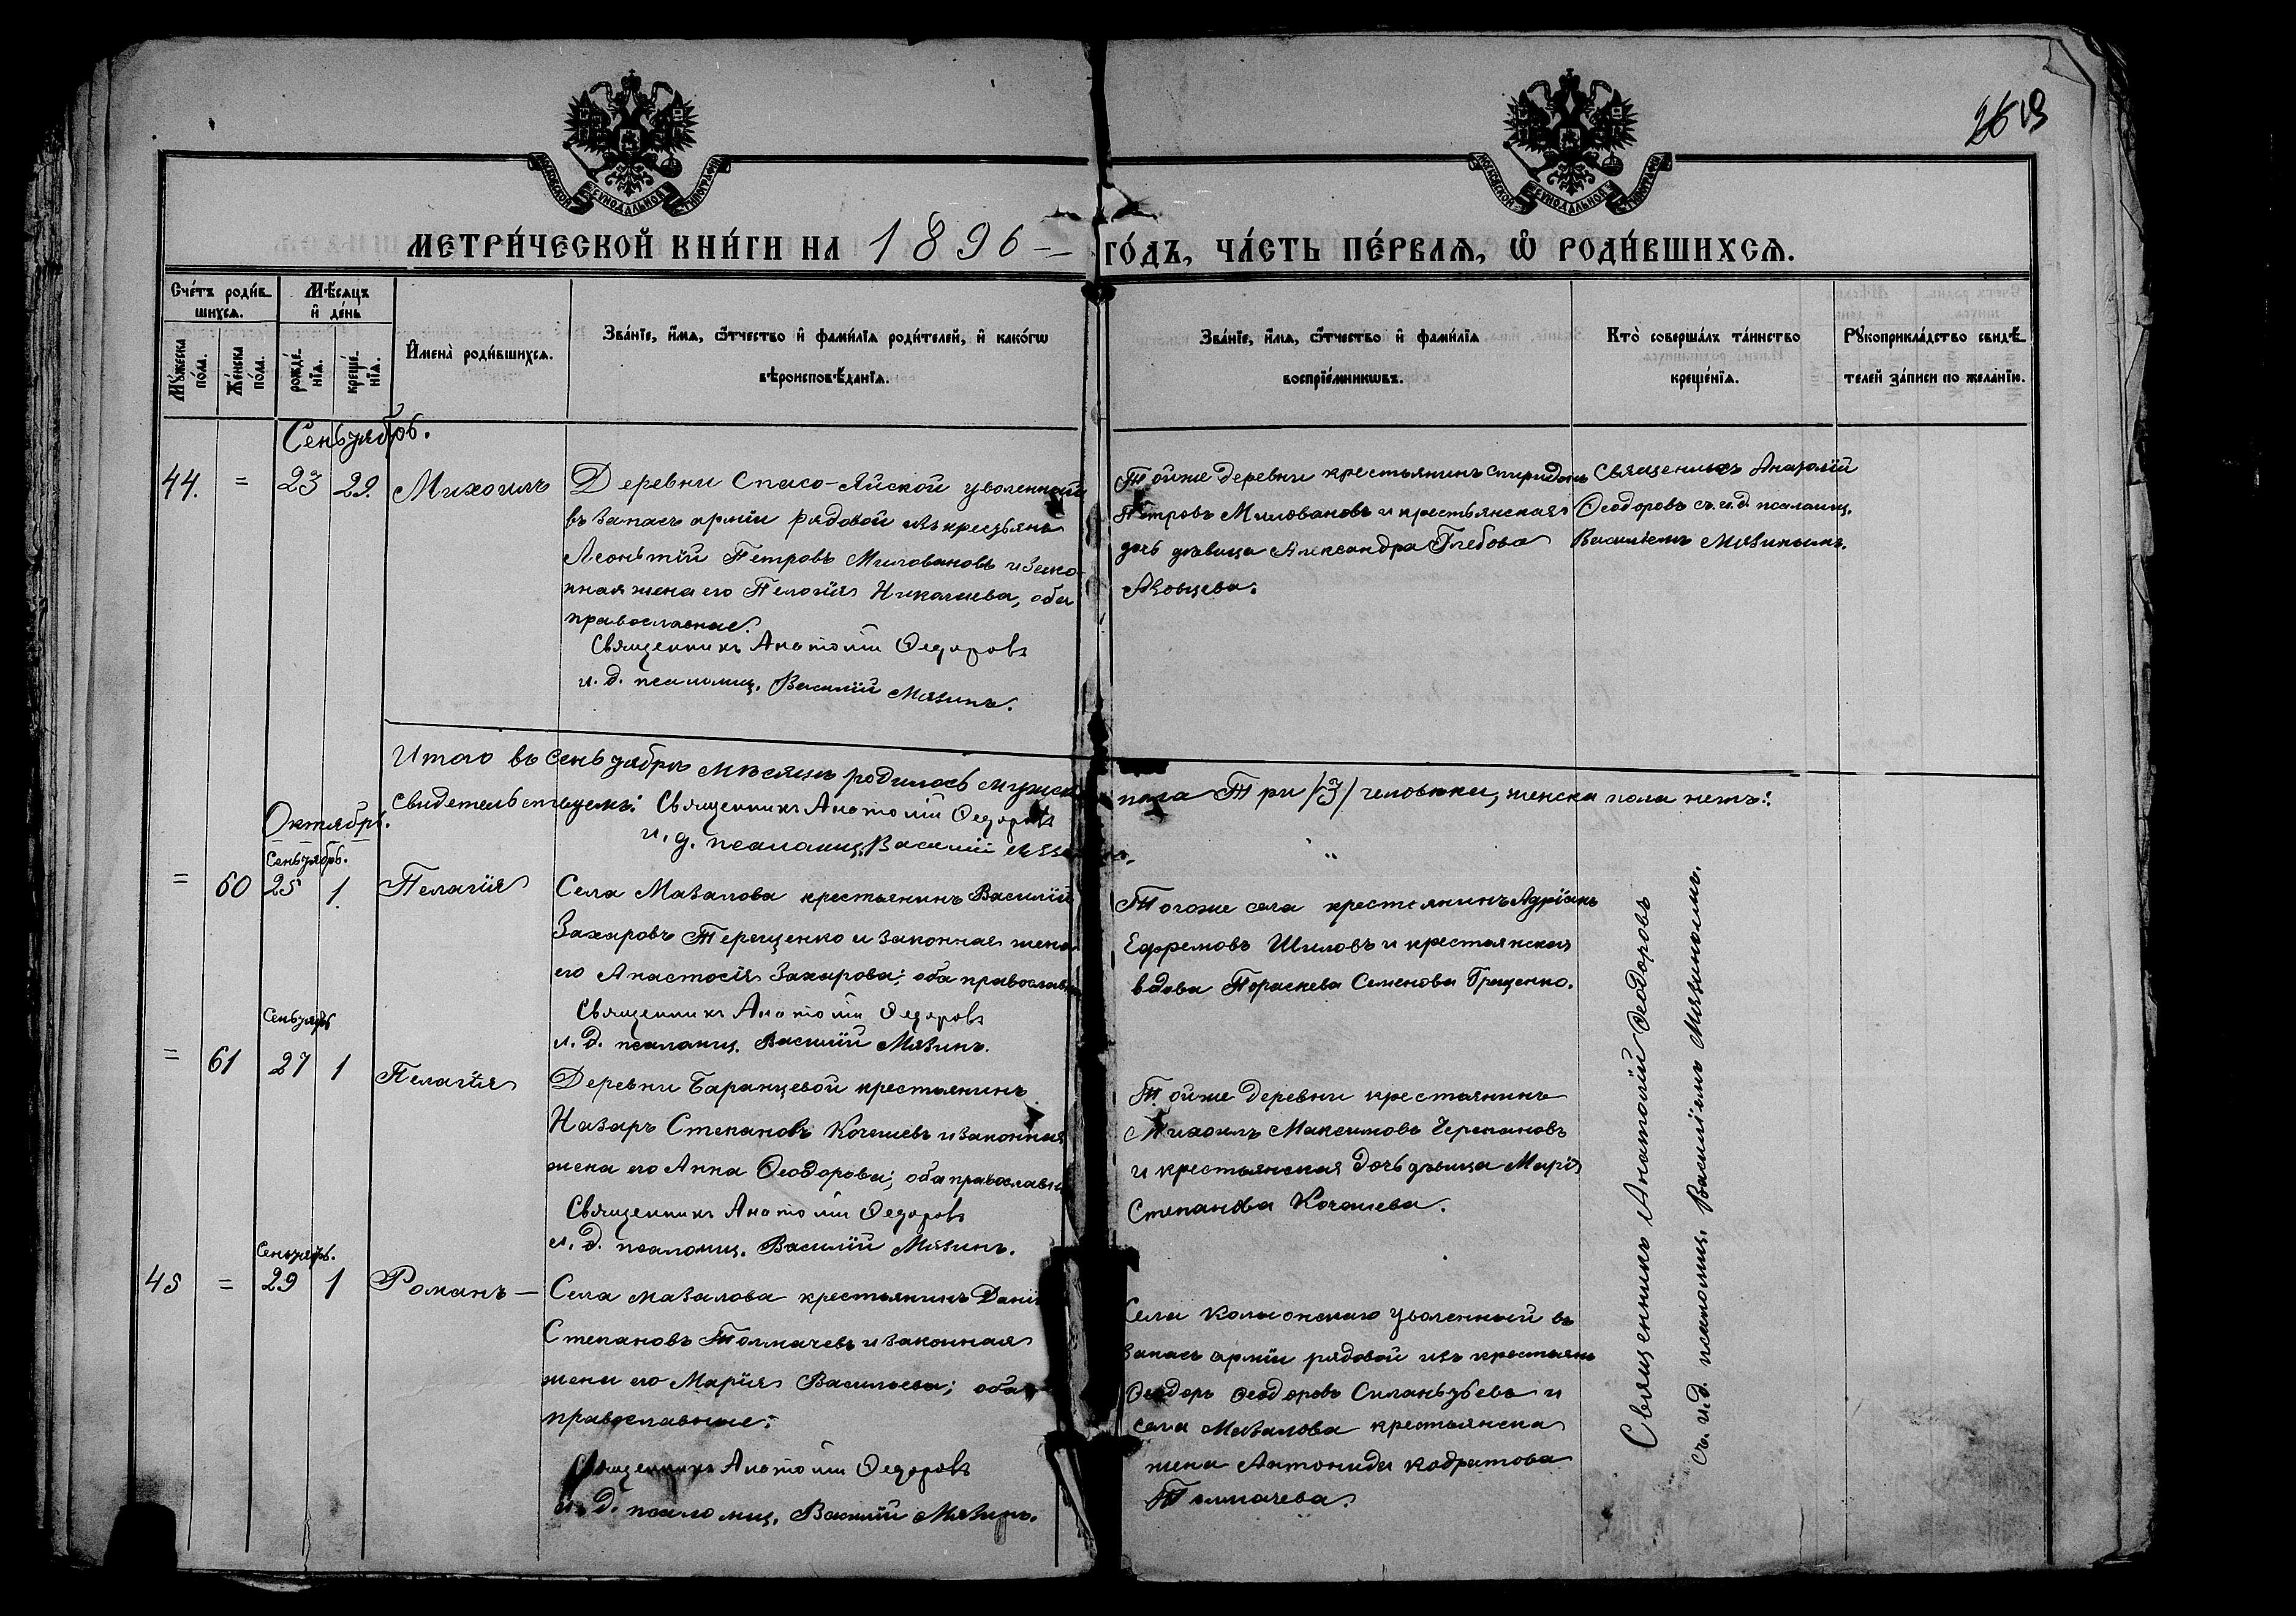 26 13
МОСКОВСКОЙ СѴНОДАЛЬНОЙ ТИПОГРАФІИ
МОСКОВСКОЙ СѴНОДАЛЬНОЙ ТИПОГРАФІИ
МЕТРИ́ЧЕСКОЙ КНИ́ГИ НА 1896 — ГО́ДЪ, ЧА́СТЬ ПЕ́РВАѦ, Ѡ҆ РОДИ́ВШИХСѦ.
Сче́тъ роди́в-
шихсѧ.
Мꙋ́жеска
по́ла.
Же́нска
по́ла.
Мѣ́сѧцъ
и҆ де́нь
рожде́-
нїѧ.
креще́-
нїѧ.
И҆мена̀ роди́вшихсѧ.
Зва́нїе, и҆́мѧ, ѻ҆́тчество и҆ фами́лїѧ роди́телей, и҆ како́гѡ
вѣроисповѣ́данїѧ.
Зва́нїе, и҆́мѧ, ѻ҆́тчество и҆ фами́лїѧ
воспрїе́мникѡвъ.
Кто̀ соверша́лъ та́инство
креще́нїѧ.
Рꙋкоприкла́дство свидѣ́-
телей за́писи по жела́нїю.
Сентябрь.
44. = 23 29. Михаилъ
Деревни Спасо-Яйской уволенный
въ запасъ арміи рядовой изъ крестьянъ
Леонтій Петровъ Миловановъ и зако-
нная жена его Пелагія Николаева, оба
православные.
Священникъ Анатолій Ѳедоровъ
и. д. псаломщ. Василій Мязинъ.
Тойже деревни крестьянинъ Спиридонъ
Петровъ Миловановъ и крестьянская
дочь дѣвица Александра Глебова
Яковцева.
Священникъ Анатолій
Ѳеодоровъ съ и. д. псаломщ.
Василіемъ Мязинымъ.
Итого въ сентябрѣ мѣсяцѣ родилось мужска пола Три /3/ человѣка, женска пола нетъ:
Свидетельствуемъ: Священникъ Анатолій Ѳедоровъ
и. д. псаломщ. Василій Мязинъ.
Октябрь.
Сентябрь.
= 60 25 1. Пелагія
Села Мазалова крестьянинъ Василій
Захаровъ Терещенко и законная жена
его Анастасія Захарова; оба православн
Священникъ Анатолій Ѳедоровъ
и. д. псаломщ. Василій Мязинъ.
Тогоже села крестьянинъ Адріанъ
Ефремовъ Шиловъ и крестьянская
вдова Параскева Семенова Грещенко.
Сентябрь
= 61 27 1 Пелагія
Деревни Баранцевой крестьянинъ
Назаръ Степановъ Кочешевъ и законная
жена его Анна Ѳеодорова; оба православн
Священникъ Анатолій Ѳедоровъ
и. д. псаломщ. Василій Мязинъ.
Тойже деревни крестьянинъ
Михаилъ Максимовъ Черепановъ
и крестьянская дочь дѣвица Марія
Степанова Кочешева.
Сентябрь.
45 = 29 1 Романъ —
Села Мазалова крестьянинъ Дані
Степановъ Толмачевъ и законная
жена его Марія Васильева; оба
православные:
Священникъ Анатолій Ѳедоровъ
и. д. псаломщ. Василій Мязинъ.
Села Колыонскаго уволенный въ
запасъ арміи рядовой изъ крестьянъ
Ѳеодоръ Ѳеодоровъ Силантьевъ и
села Мазалова крестьянска
жена Антонида Кодратова
Толмачева.
Священникъ Анатолій Ѳеодоровъ
съ и. д. псаломщ. Василіемъ Мязинымъ.